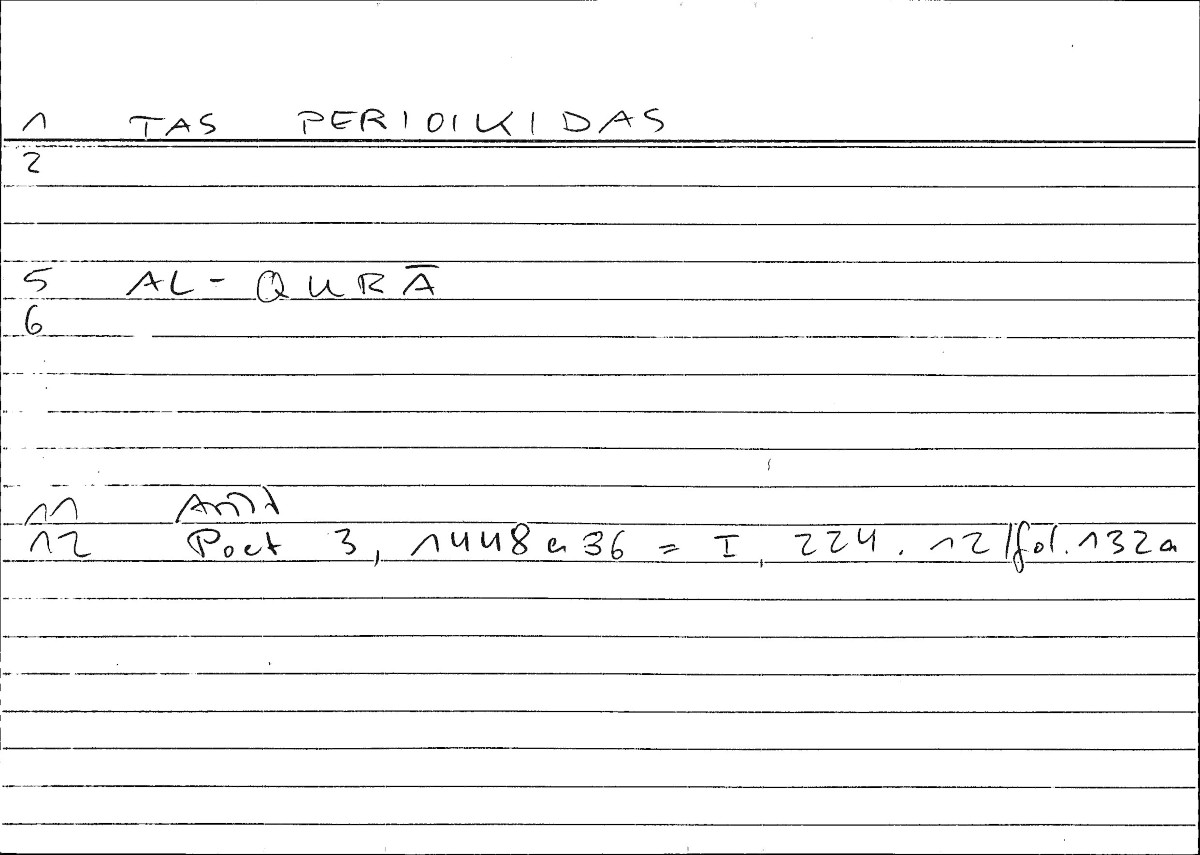 1 TAS PERIOIKIDAS
2
5 AL-QURĀ
6
11
12 Poet 3, 1448a36 = I, 224.12/fol.132a